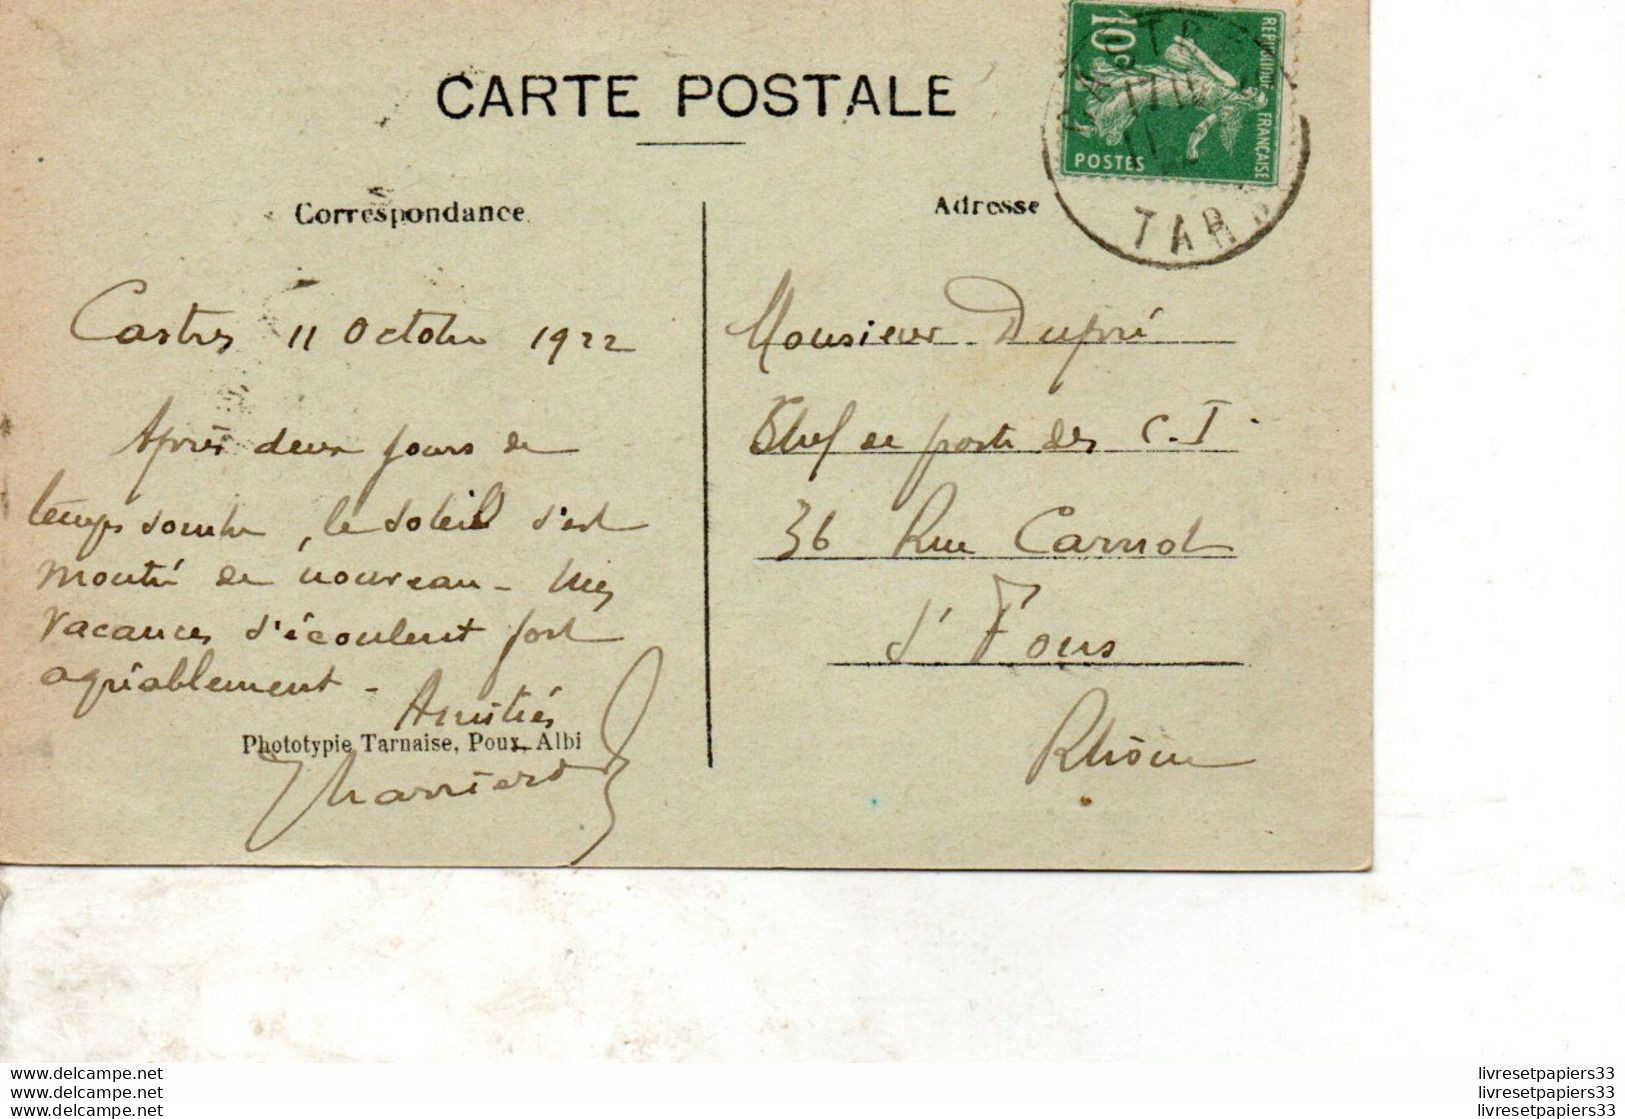 CARTE POSTALE
10c
REPUBLIQUE FRANÇAISE
POSTES
TARN
Correspondance
Adresse
Castres 11 Octobre 1922
Après deux jours de
temps sombre, le soleil s'est
montré de nouveau - Mes
vacances s'écoulent fort
agréablement -
Amitiés
Phototypie Tarnaise, Poux, Albi
Monsieur Dupré
Chef de poste des C.I.
36 Rue Carnot
St Fons
Rhône
www.delcampe.net
www.delcampe.net
www.delcampe.net
livresetpapiers33
livresetpapiers33
livresetpapiers33